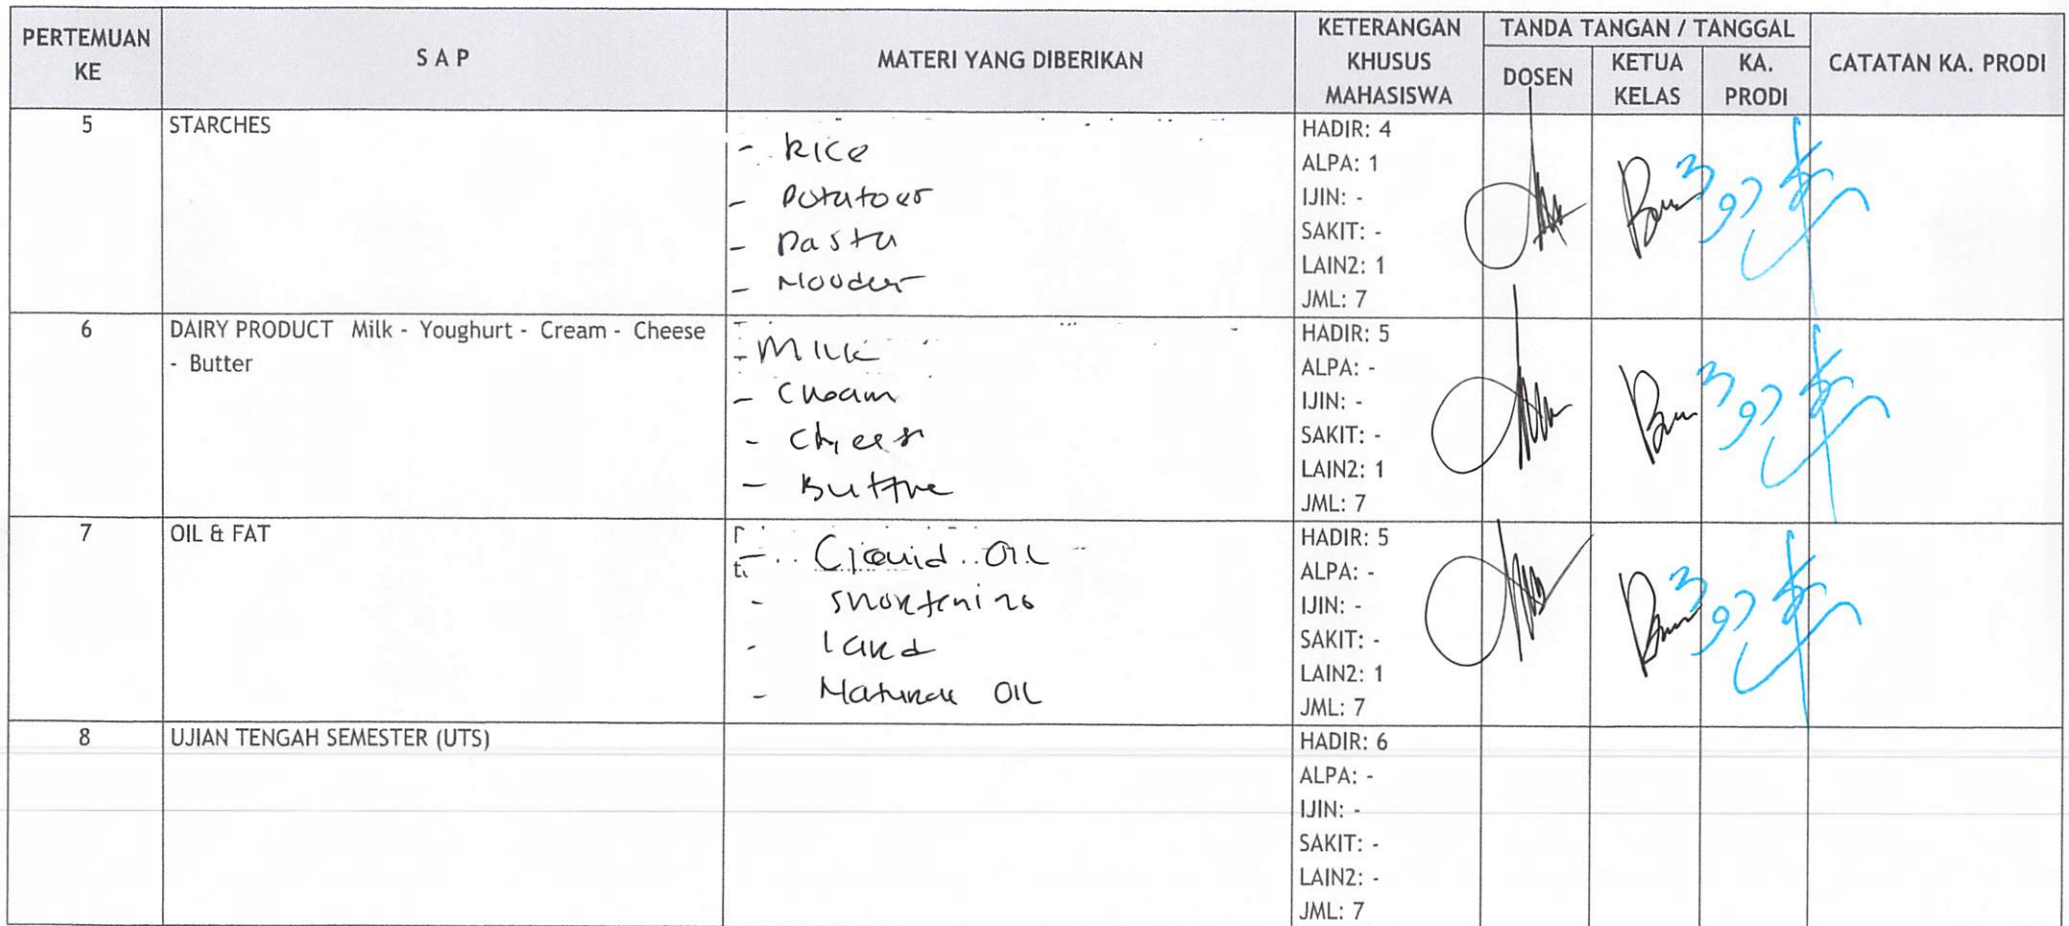 PERTEMUAN KE
S A P
MATERI YANG DIBERIKAN
KETERANGAN KHUSUS MAHASISWA
TANDA TANGAN / TANGGAL
DOSEN
KETUA KELAS
KA. PRODI
CATATAN KA. PRODI
5
STARCHES
- Rice
- Potatoes
- Pasta
- Noodles
HADIR: 4
ALPA: 1
IJIN: -
SAKIT: -
LAIN2: 1
JML: 7
6
DAIRY PRODUCT Milk - Youghurt - Cream - Cheese
- Butter
- Milk
- Cream
- Chees
- Butter
HADIR: 5
ALPA: -
IJIN: -
SAKIT: -
LAIN2: 1
JML: 7
7
OIL & FAT
- Liquid Oil
- Shortening
- Lard
- Natural Oil
HADIR: 5
ALPA: -
IJIN: -
SAKIT: -
LAIN2: 1
JML: 7
8
UJIAN TENGAH SEMESTER (UTS)
HADIR: 6
ALPA: -
IJIN: -
SAKIT: -
LAIN2: -
JML: 7